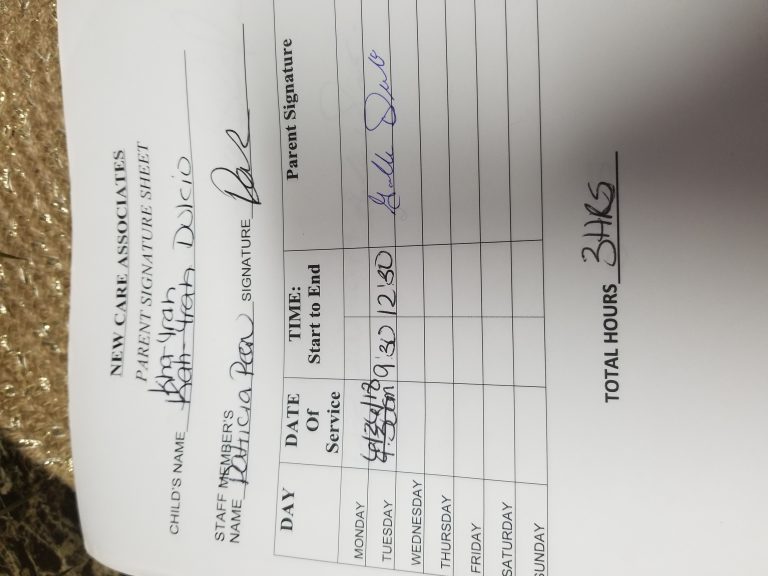 NEW CARE ASSOCIATES
PARENT SIGNATURE SHEET
CHILD'S NAME Kah-Yrah Dulcio
STAFF MEMBER'S
NAME Patricia SIGNATURE
DAY DATE Of Service TIME: Start to End Parent Signature
MONDAY
TUESDAY 9:30 12:30
WEDNESDAY
THURSDAY
FRIDAY
SATURDAY
SUNDAY
TOTAL HOURS 3HRS